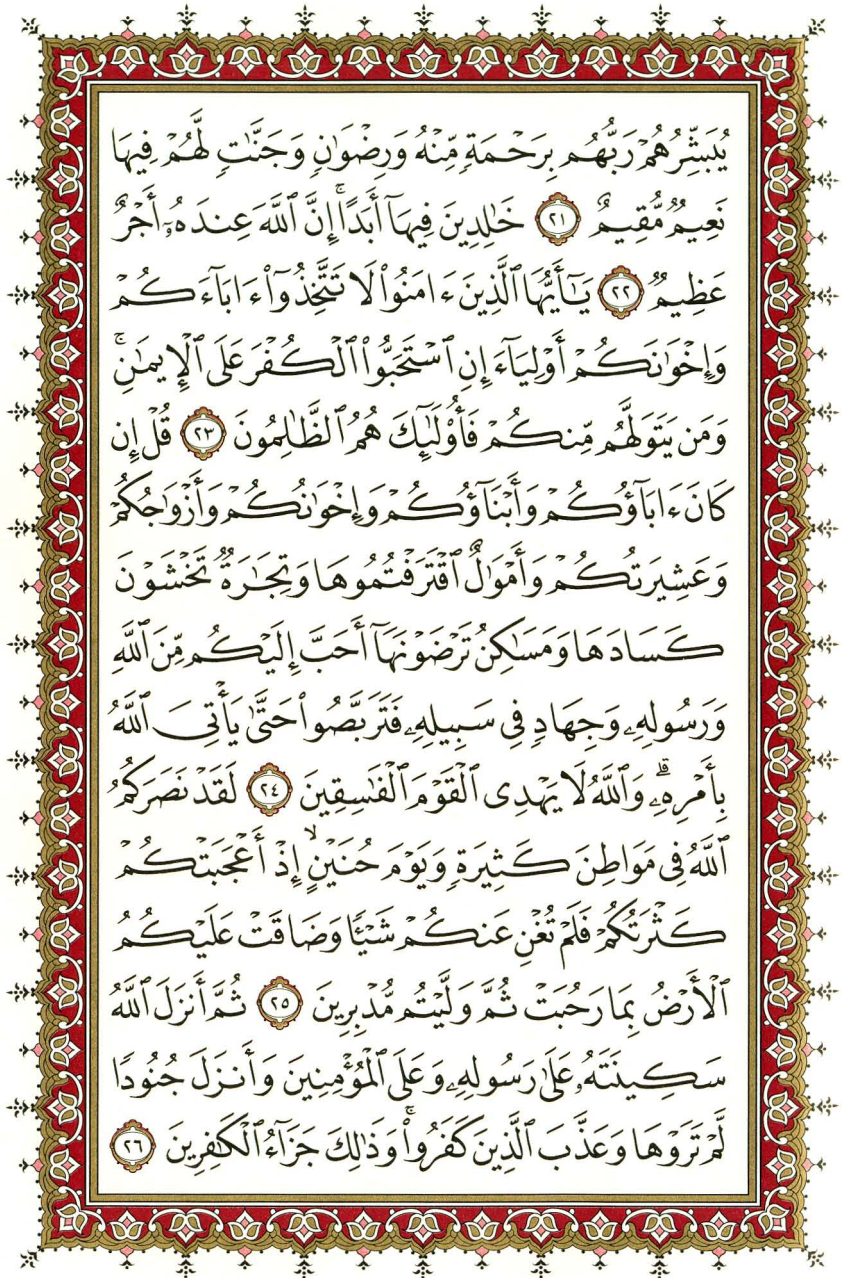 يُبَشِّرُهُمْ رَبُّهُم بِرَحْمَةٍ مِّنْهُ وَرِضْوَٰنٍ وَجَنَّٰتٍ لَّهُمْ فِيهَا
نَعِيمٌ مُّقِيمٌ ٢١ خَٰلِدِينَ فِيهَآ أَبَدًا ۚ إِنَّ ٱللَّهَ عِندَهُۥٓ أَجْرٌ
عَظِيمٌ ٢٢ يَٰٓأَيُّهَا ٱلَّذِينَ ءَامَنُوا۟ لَا تَتَّخِذُوٓا۟ ءَابَآءَكُمْ
وَإِخْوَٰنَكُمْ أَوْلِيَآءَ إِنِ ٱسْتَحَبُّوا۟ ٱلْكُفْرَ عَلَى ٱلْإِيمَٰنِ ۚ
وَمَن يَتَوَلَّهُم مِّنكُمْ فَأُو۟لَٰٓئِكَ هُمُ ٱلظَّٰلِمُونَ ٢٣ قُلْ إِن
كَانَ ءَابَآؤُكُمْ وَأَبْنَآؤُكُمْ وَإِخْوَٰنُكُمْ وَأَزْوَٰجُكُمْ
وَعَشِيرَتُكُمْ وَأَمْوَٰلٌ ٱقْتَرَفْتُمُوهَا وَتِجَٰرَةٌ تَخْشَوْنَ
كَسَادَهَا وَمَسَٰكِنُ تَرْضَوْنَهَآ أَحَبَّ إِلَيْكُم مِّنَ ٱللَّهِ
وَرَسُولِهِۦ وَجِهَادٍ فِى سَبِيلِهِۦ فَتَرَبَّصُوا۟ حَتَّىٰ يَأْتِىَ ٱللَّهُ
بِأَمْرِهِۦ ۗ وَٱللَّهُ لَا يَهْدِى ٱلْقَوْمَ ٱلْفَٰسِقِينَ ٢٤ لَقَدْ نَصَرَكُمُ
ٱللَّهُ فِى مَوَاطِنَ كَثِيرَةٍ ۙ وَيَوْمَ حُنَيْنٍ ۙ إِذْ أَعْجَبَتْكُمْ
كَثْرَتُكُمْ فَلَمْ تُغْنِ عَنكُمْ شَيْـًٔا وَضَاقَتْ عَلَيْكُمُ
ٱلْأَرْضُ بِمَا رَحُبَتْ ثُمَّ وَلَّيْتُم مُّدْبِرِينَ ٢٥ ثُمَّ أَنزَلَ ٱللَّهُ
سَكِينَتَهُۥ عَلَىٰ رَسُولِهِۦ وَعَلَى ٱلْمُؤْمِنِينَ وَأَنزَلَ جُنُودًا
لَّمْ تَرَوْهَا وَعَذَّبَ ٱلَّذِينَ كَفَرُوا۟ ۚ وَذَٰلِكَ جَزَآءُ ٱلْكَٰفِرِينَ ٢٦